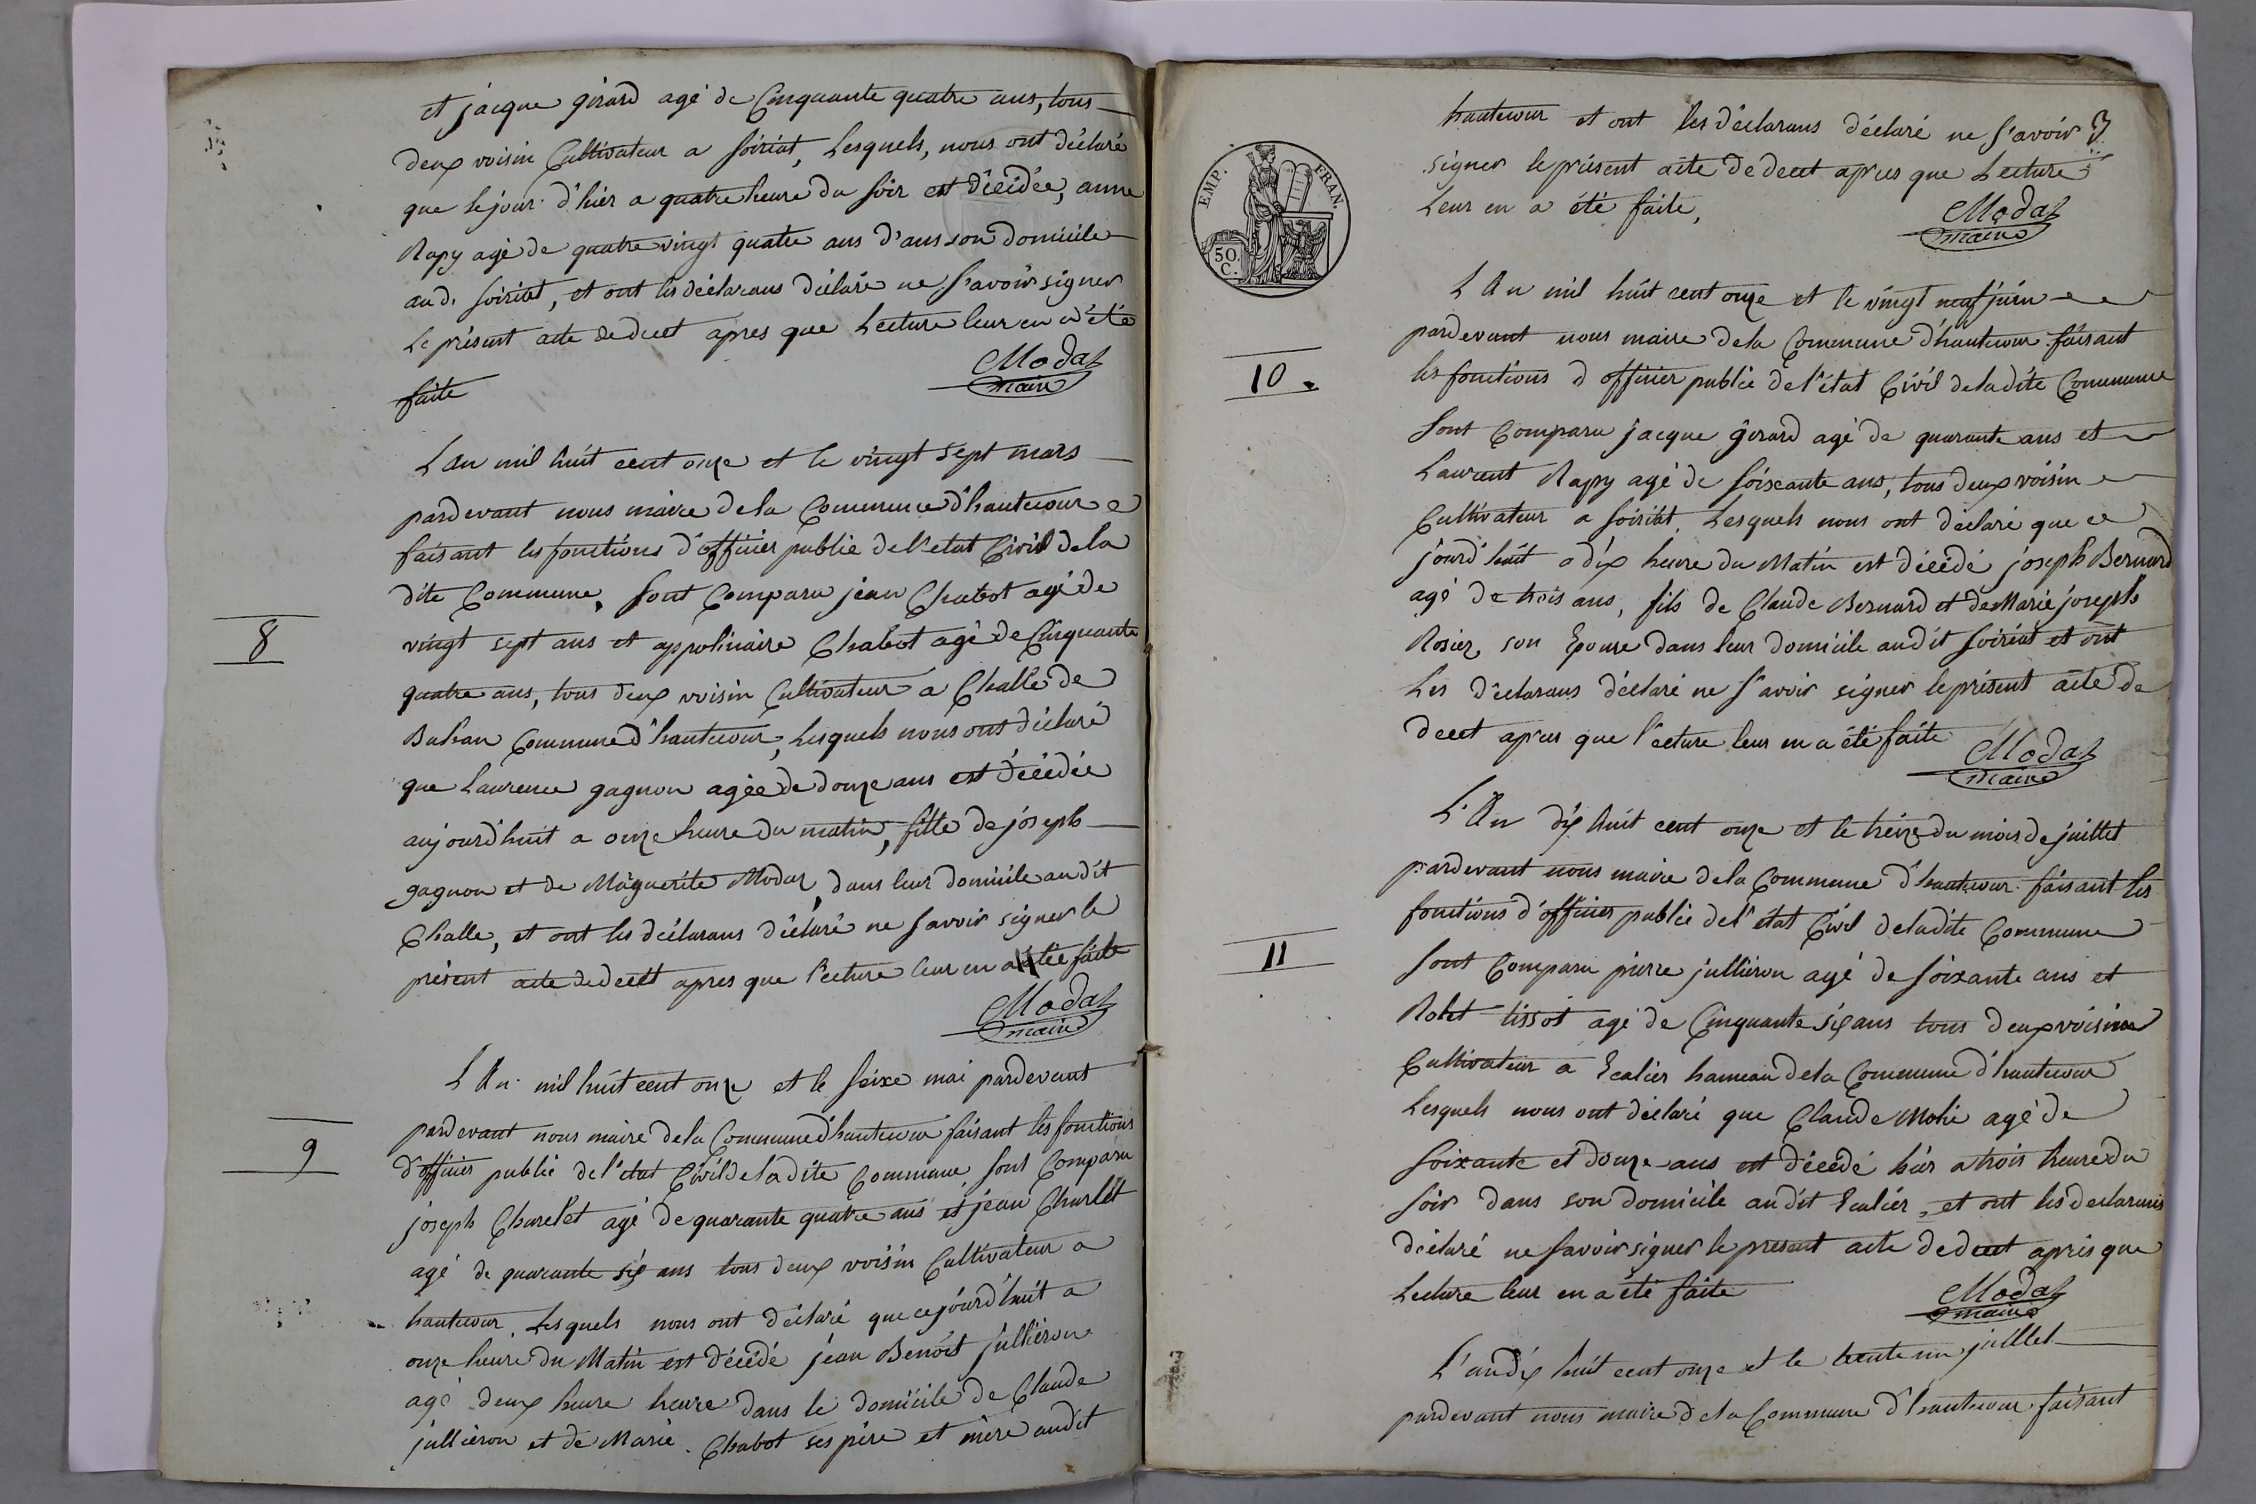 et jacque girard agé de Cinquante quatre ans, tous
deux voisin Cultivateur a soiriat, Lesquels, nous ont déclaré
que le jour d'hier a quatre heure du soir est décédée, anne
Rapy agé de quatre vingt quatre ans d'ans son domicile
aud. soiriat, et ont les déclarans déclaré ne s'avoir signer
Le présent acte de decet apres que Lecture leur en a été
faite
Modaz
maire
8
L'An mil huit cent onze et le vingt sept mars
pardevant nous maire de la Commune d'hautecour
faisant les fonctions d'officier public de l'etat Civil de la
dite Commune, sont Comparu jean Chabot agé de
vingt sept ans et appolinaire Chabot agé de Cinquante
quatre ans, tous deux voisin Cultivateur a Challe de
Bohan Commune d'hautecour, Lesquels nous ont déclaré
que Laurence gagnon agée de douze ans est décédée
aujourd'huit a onze heure du matin, fille de joseph
gagnon et de Maguerite Modaz, dans leur domicile audit
Challe, et ont les déclarans déclaré ne savoir signer le
présent acte de decet apres que l'ecture leur en a étée faite
Modaz
maire
9
L'An mil huit cent onze et le seize mai pardevant
pardevant nous maire de la Commune d'hautecour faisant les fonctions
d'officier public de l'état Civil de la dite Commune, sont Comparu
joseph Charelet agé de quarante quatre ans et jean Charlet
agé de quarante six ans tous deux voisin Cultivateur a
hautecour, Lesquels nous ont déclaré que cejourd'huit a
onze heure du Matin est décédé jean Benoit jullieron
agé deux heure heure dans le domicile de Claude
jullieron et de Marie Chabot ses père et mère audit
3
hautecour et ont les déclarans déclaré ne s'avoir
signer le présent acte de decet aprés que Lecture
Leur en a été faite,
Modaz
maire
EMP. FRAN.
50.
C.
10.
L'An mil huit cent onze et le vingt neuf juin
pardevant nous maire de la Commune d'hautecour faisant
les fonctions d'officier public de l'état Civil de la dite Commune
sont Comparu jacque girard agé de quarante ans et
Laurent Rapy agé de soixante ans, tous deux voisin
Cultivateur a soiriat, Lesquels nous ont déclaré que ce
jourd'huit a dix heure du Matin est décédé joseph Bernard
agé de trois ans, fils de Claude Bernard et de Marie joseph
Rosier son Epouse dans leur domicile audit soiriat et ont
Les déclarans déclaré ne s'avoir signer le présent acte de
decet aprés que l'ecture leur en a été faite
Modaz
maire
11
L'An dix huit cent onze et le treize du mois de juillet
pardevant nous maire de la Commune d'hautecour faisant les
fonctions d'officier public de l'état Civil de la dite Commune
sont Comparu pierre jullieron agé de soixante ans et
Robet tissot agé de Cinquante six ans tous deux voisin
Cultivateur a Ecalier hameau de la Commune d'hautecour
Lesquels nous ont déclaré que Claude Mohé agé de
soixante et douze ans est décédé hier a trois heure du
soir dans son domicile audit Ecalier, et ont les declarans
déclaré ne savoir signer le present acte de decet apris que
Lecture leur en a été faite
Modaz
maire
L'an dix huit cent onze et le trente un juillet
pardevant nous maire de la Commune d'hautecour faisant